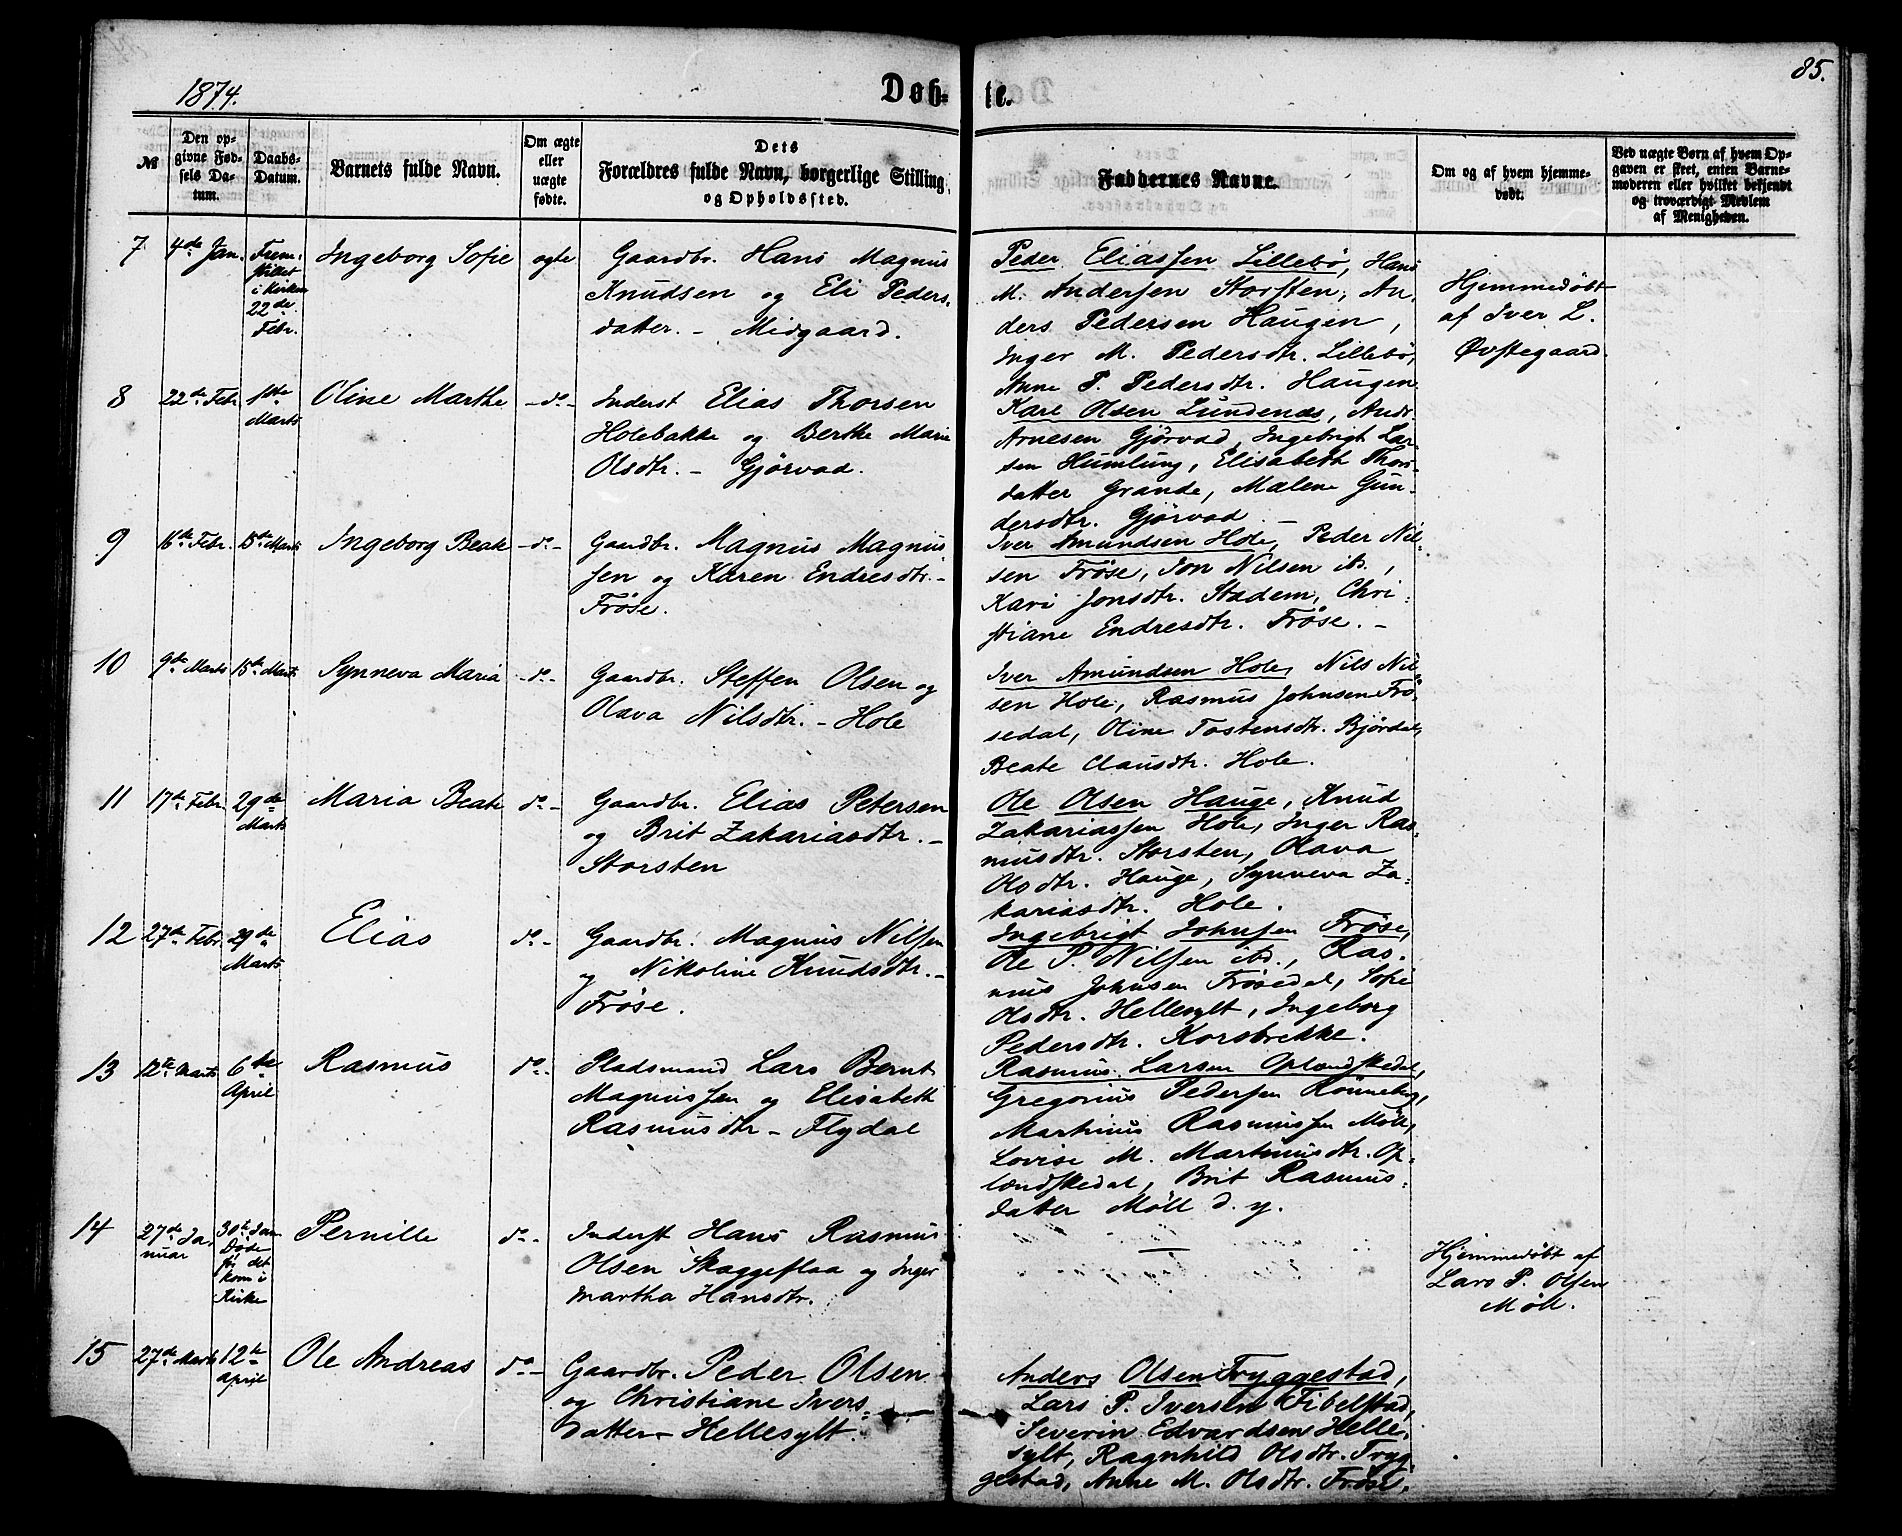 1874.
Døb-
te.
85.
№
Den op-
givne Fød-
sels Da-
tum.
Daabs-
Datum.
Barnets fulde Navn.
Om ægte
eller
uægte
fødte.
Dets
Forældres fulde Navn, borgerlige Stilling
og Opholdssted.
Faddernes Navne.
Om og af hvem hjemme-
døbt.
Ved uægte Børn af hvem Op-
gaven er skeet, enten Barne-
moderen eller hvilket bekjendt
og troværdigt Medlem
af Menigheden.
7
4de Jan.
Frem-
stillet
i Kirken
22de
Febr.
Ingeborg Sofie
ægte
Gaardbr. Hans Magnus
Knudsen og Eli Peders-
datter. - Midgaard.
Peder Eliassen Lillebø, Hans
M. Andersen Storsten, An-
ders Pedersen Haugen,
Inger M. Pedersdtr. Lillebø,
Anne P. Pedersdtr. Haugen
Hjemmedøbt
af Iver L.
Øvstegaard.
8
22de Febr.
1ste
Marts
Oline Marthe
- do -
Inderst Elias Thorsen
Holebakke og Berthe Marie
Olsdtr. - Gjørvad.
Karl Olsen Lundenæs, Andr.
Arnesen Gjørvad, Ingebrigt Lar-
sen Humlung, Elisabeth Thors-
datter Grande, Malene Gun-
dersdtr. Gjørvad -
9
16de Febr.
15de Marts
Ingeborg Beate
- do -
Gaardbr. Magnus Magnus-
sen og Karen Endresdtr. -
Frøse.
Iver Amundsen Hole, Peder Nil-
sen Frøse, Jon Nilsen ib.,
Kari Jonsdtr. Stadem, Chri-
stiane Endresdtr. Frøse. -
10
9de Marts
15de Marts
Synneva Maria
- do -
Gaardbr. Steffen Olsen og
Olava Nilsdtr. - Hole
Iver Amundsen Hole, Nils Nil-
sen Hole, Rasmus Johnsen Frø-
sedal, Oline Tostensdtr. Bjørdal,
Beate Clausdtr. Hole.
11
17de Febr.
29de
Marts
Maria Beate
do -
Gaardbr. Elias Petersen
og Brit Zakariasdtr. -
Storsten
Ole Olsen Hauge, Knud
Zakariassen Hole, Inger Ras-
musdtr. Storsten, Olava
Olsdtr. Hauge, Synneva Za-
kariasdtr. Hole.
12
27de Febr.
29de
Marts
Elias
do -
Gaardbr. Magnus Nilsen
og Nikoline Knudsdtr. -
Frøse.
Ingebrigt Johnsen Frøse,
Ole P. Nilsen ibd., Ras-
mus Johnsen Frøsedal, Sofie
Olsdtr. Hellesylt, Ingeborg
Pedersdtr. Korsbrekke.
13
12te Marts
6te
April
Rasmus
do -
Pladsmand Lars Bernt
Magnussen og Elisabeth
Rasmusdtr - Flydal
Rasmus Larsen Oplændskedal,
Gregorius Pedersen Rønneberg,
Martinus Rasmussen Møll,
Lovise M. Martinusdtr. Op-
lændskedal, Brit Rasmus-
datter Møll d. y.
14
27de Ja-
nuar
30te Jan
Døde
før det
kom i
Kirke
Pernille
do -
Inderst Hans Rasmus
Olsen Skaggeflaa og Inger
Martha Hansdtr.
—
Hjemmedøbt af
Lars P. Olsen
Møll.
15
27de Marts
12te
April
Ole Andreas
do -
Gaardbr. Peder Olsen
og Christiane Ivers-
datter - Hellesylt.
Anders Olsen Tryggestad,
Lars P. Iversen Fibelstad,
Severin Edvardsen Helle-
sylt, Ragnhild Olsdtr. Tryg-
gestad, Anne M. Olsdtr. Frøse.